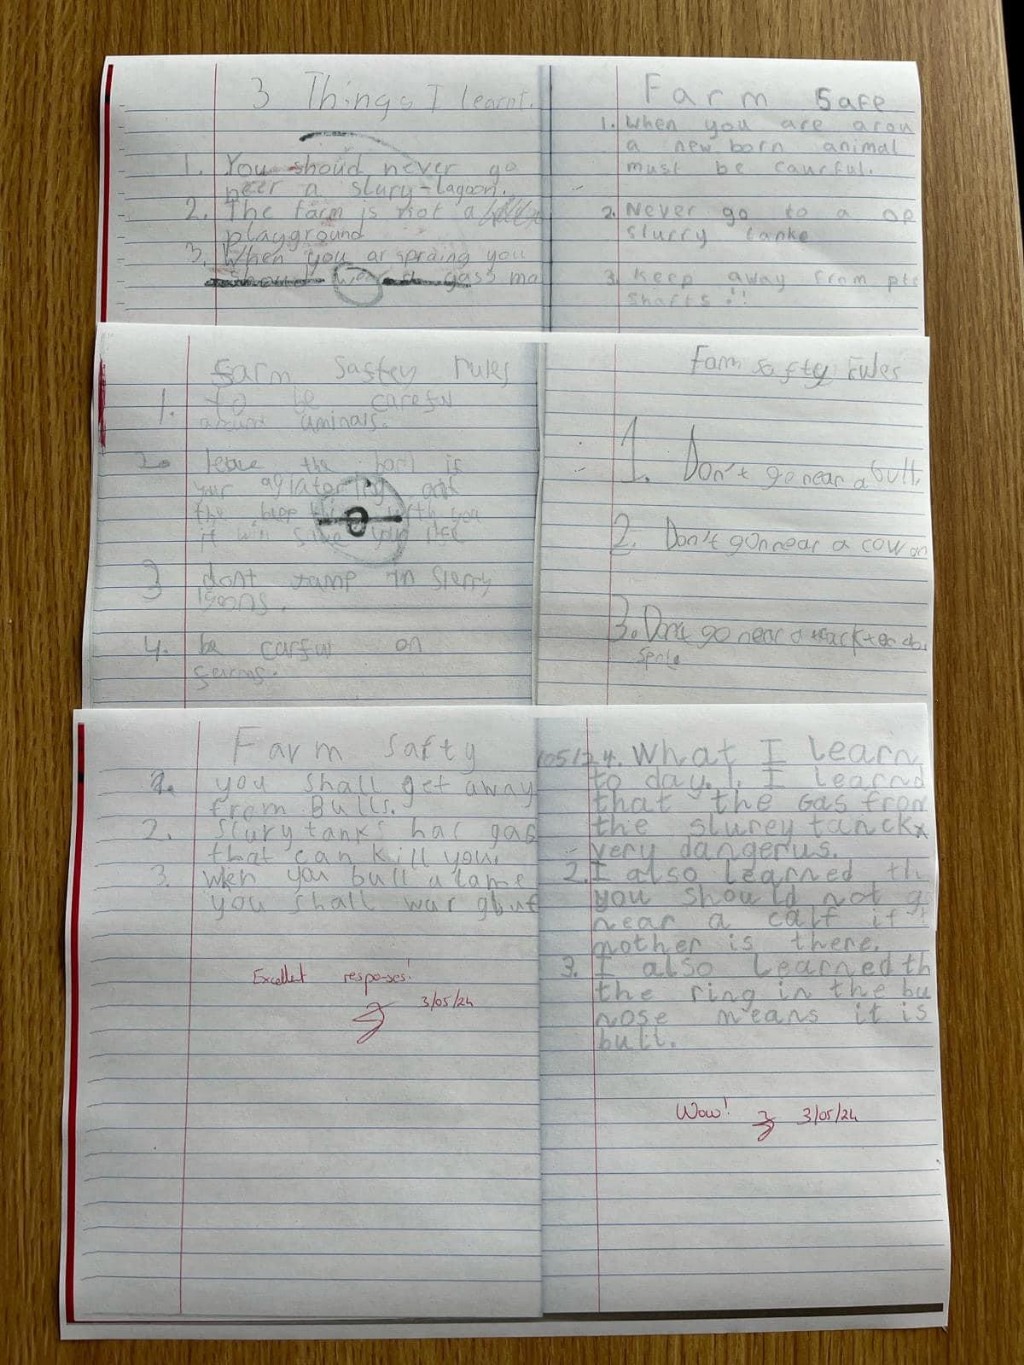 3 Things I learnt.
1. You shoud never go
neer a slury-lagoon.
2. The farm is not a
playground
3. When you ar sprding you
gass ma
Farm Safe
1. When you are arou
a newborn animal
must be caurful.
2. Never go to a op
slurry tanke
3. Keep away from pto
shafts!!
Farm Saftey rules
1. to be careful
aminals.
2. leave the is
your and
the with you
it will save your life
3 dont Jamp in Slerry
4. be carful on
Farm Safty rules
1. Don't go near a bull.
2. Don't go near a cow an
3. Dont go near a
Farm Safty
1. you shall get away
from Bulls.
2. Slury tanks has gas
that can kill you.
3. when you bull a lame
you shall war
Excellent responses!
3/05/24
05/24. What I learn
to day. 1. I learnd
that the Gas from
the slurey tanck
very dangerus.
2. I also learned th
you should not g
near a calf if
mother is there.
3. I also learned th
the ring in the bu
nose means it is
bull.
Wow! 3/05/24